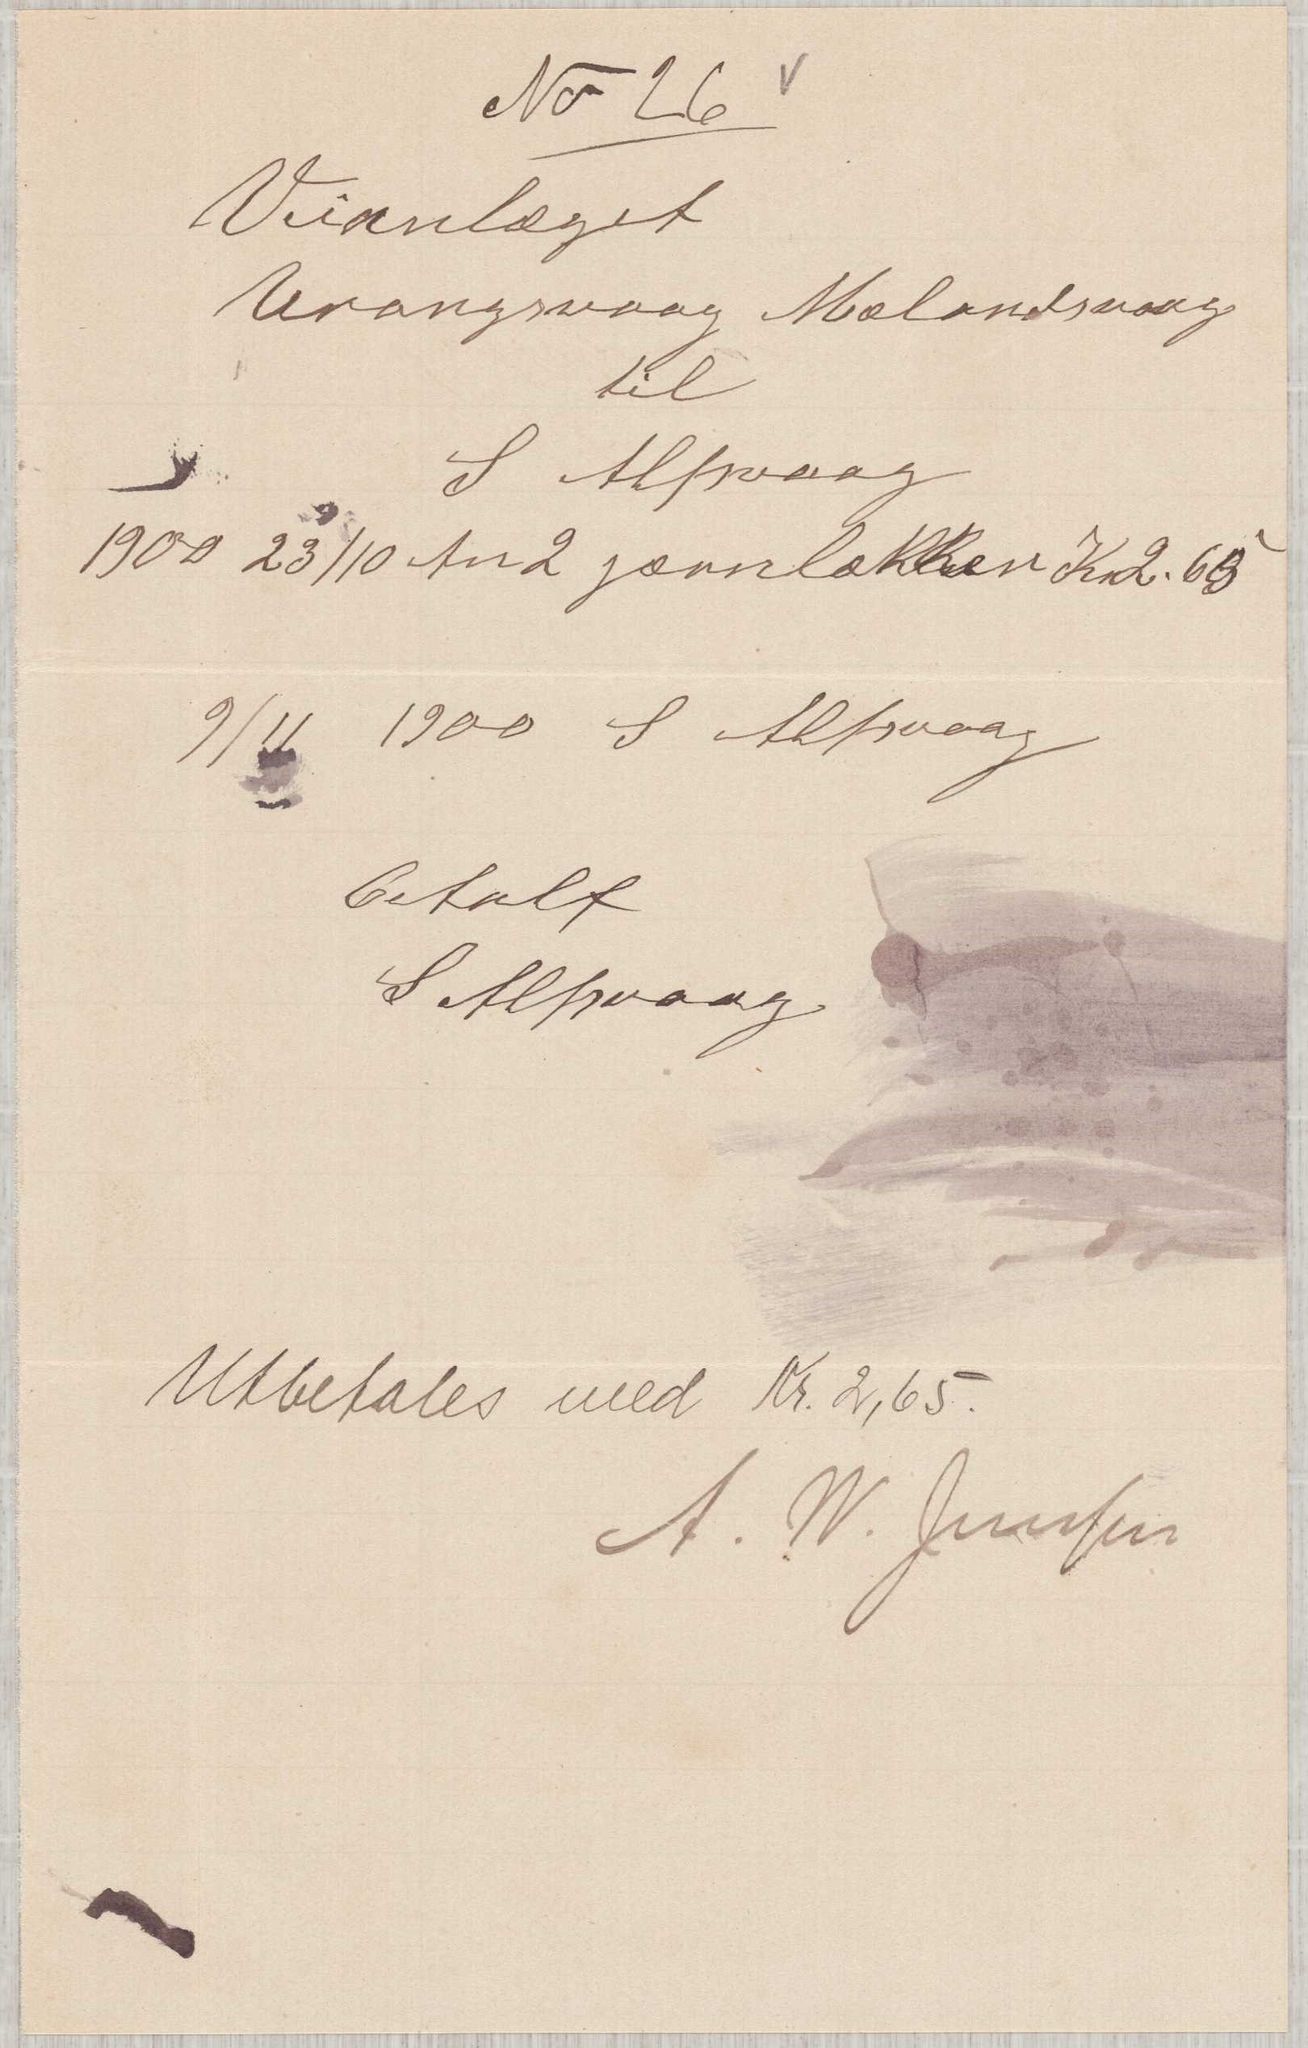 No 26 v
Veianlæget
Urangsvaag Mælandsvaag
til
S Alfsvaag
1900 23/10 An 2 jærnlækker Kr 2.65
9/11 1900 S Alfsvaag
betalt
S Alfsvaag
Utbetales med Kr. 2,65.
A. W. Jensen